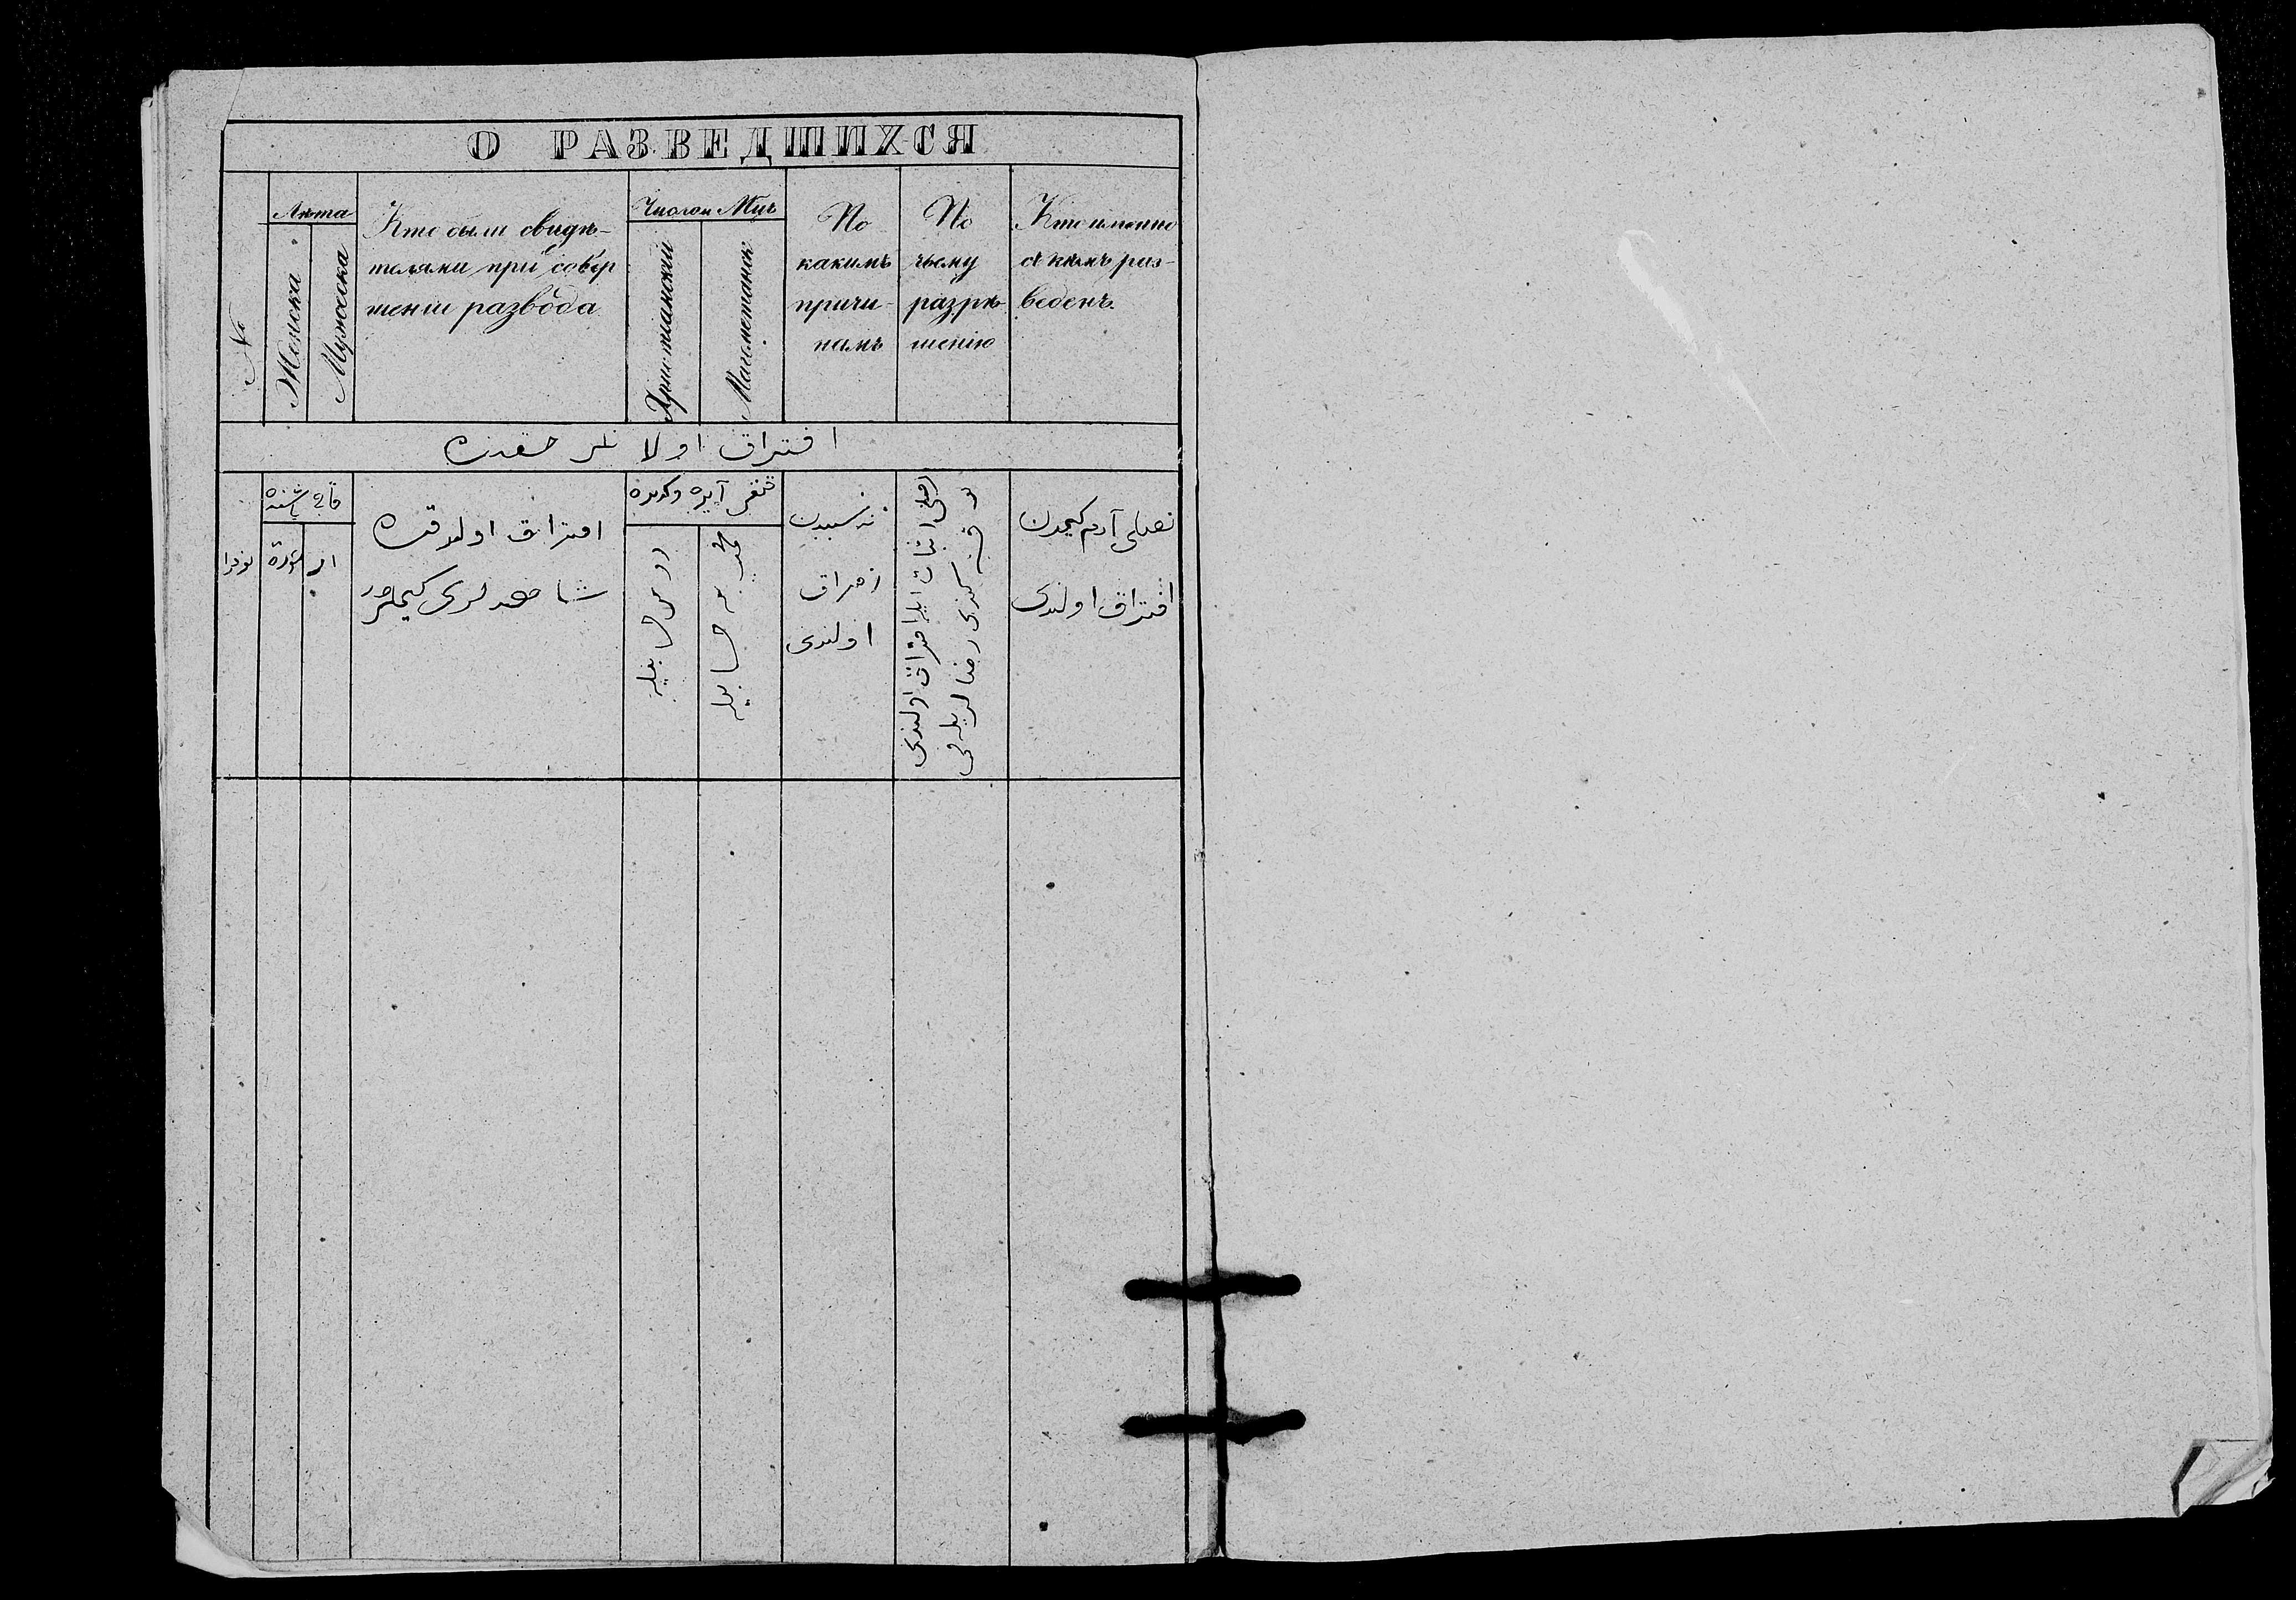 О РАЗВЕДШИХСЯ
№
Лѣта
Женска
Мужеска
Кто были свидѣ-
телями при совер
шеніи развода
Число и Мцъ
Христіанскій
Магометанск
По
какимъ
причи-
намъ
По
чьему
разрѣ-
шенію
Кто именно
съ кѣмъ раз-
веденъ.
افتراق اولانلر حقنده
افتراق اولدقده
شاهدلری کیملردر
نه سببدن
افتراق
اولندی
افتراق اولندی